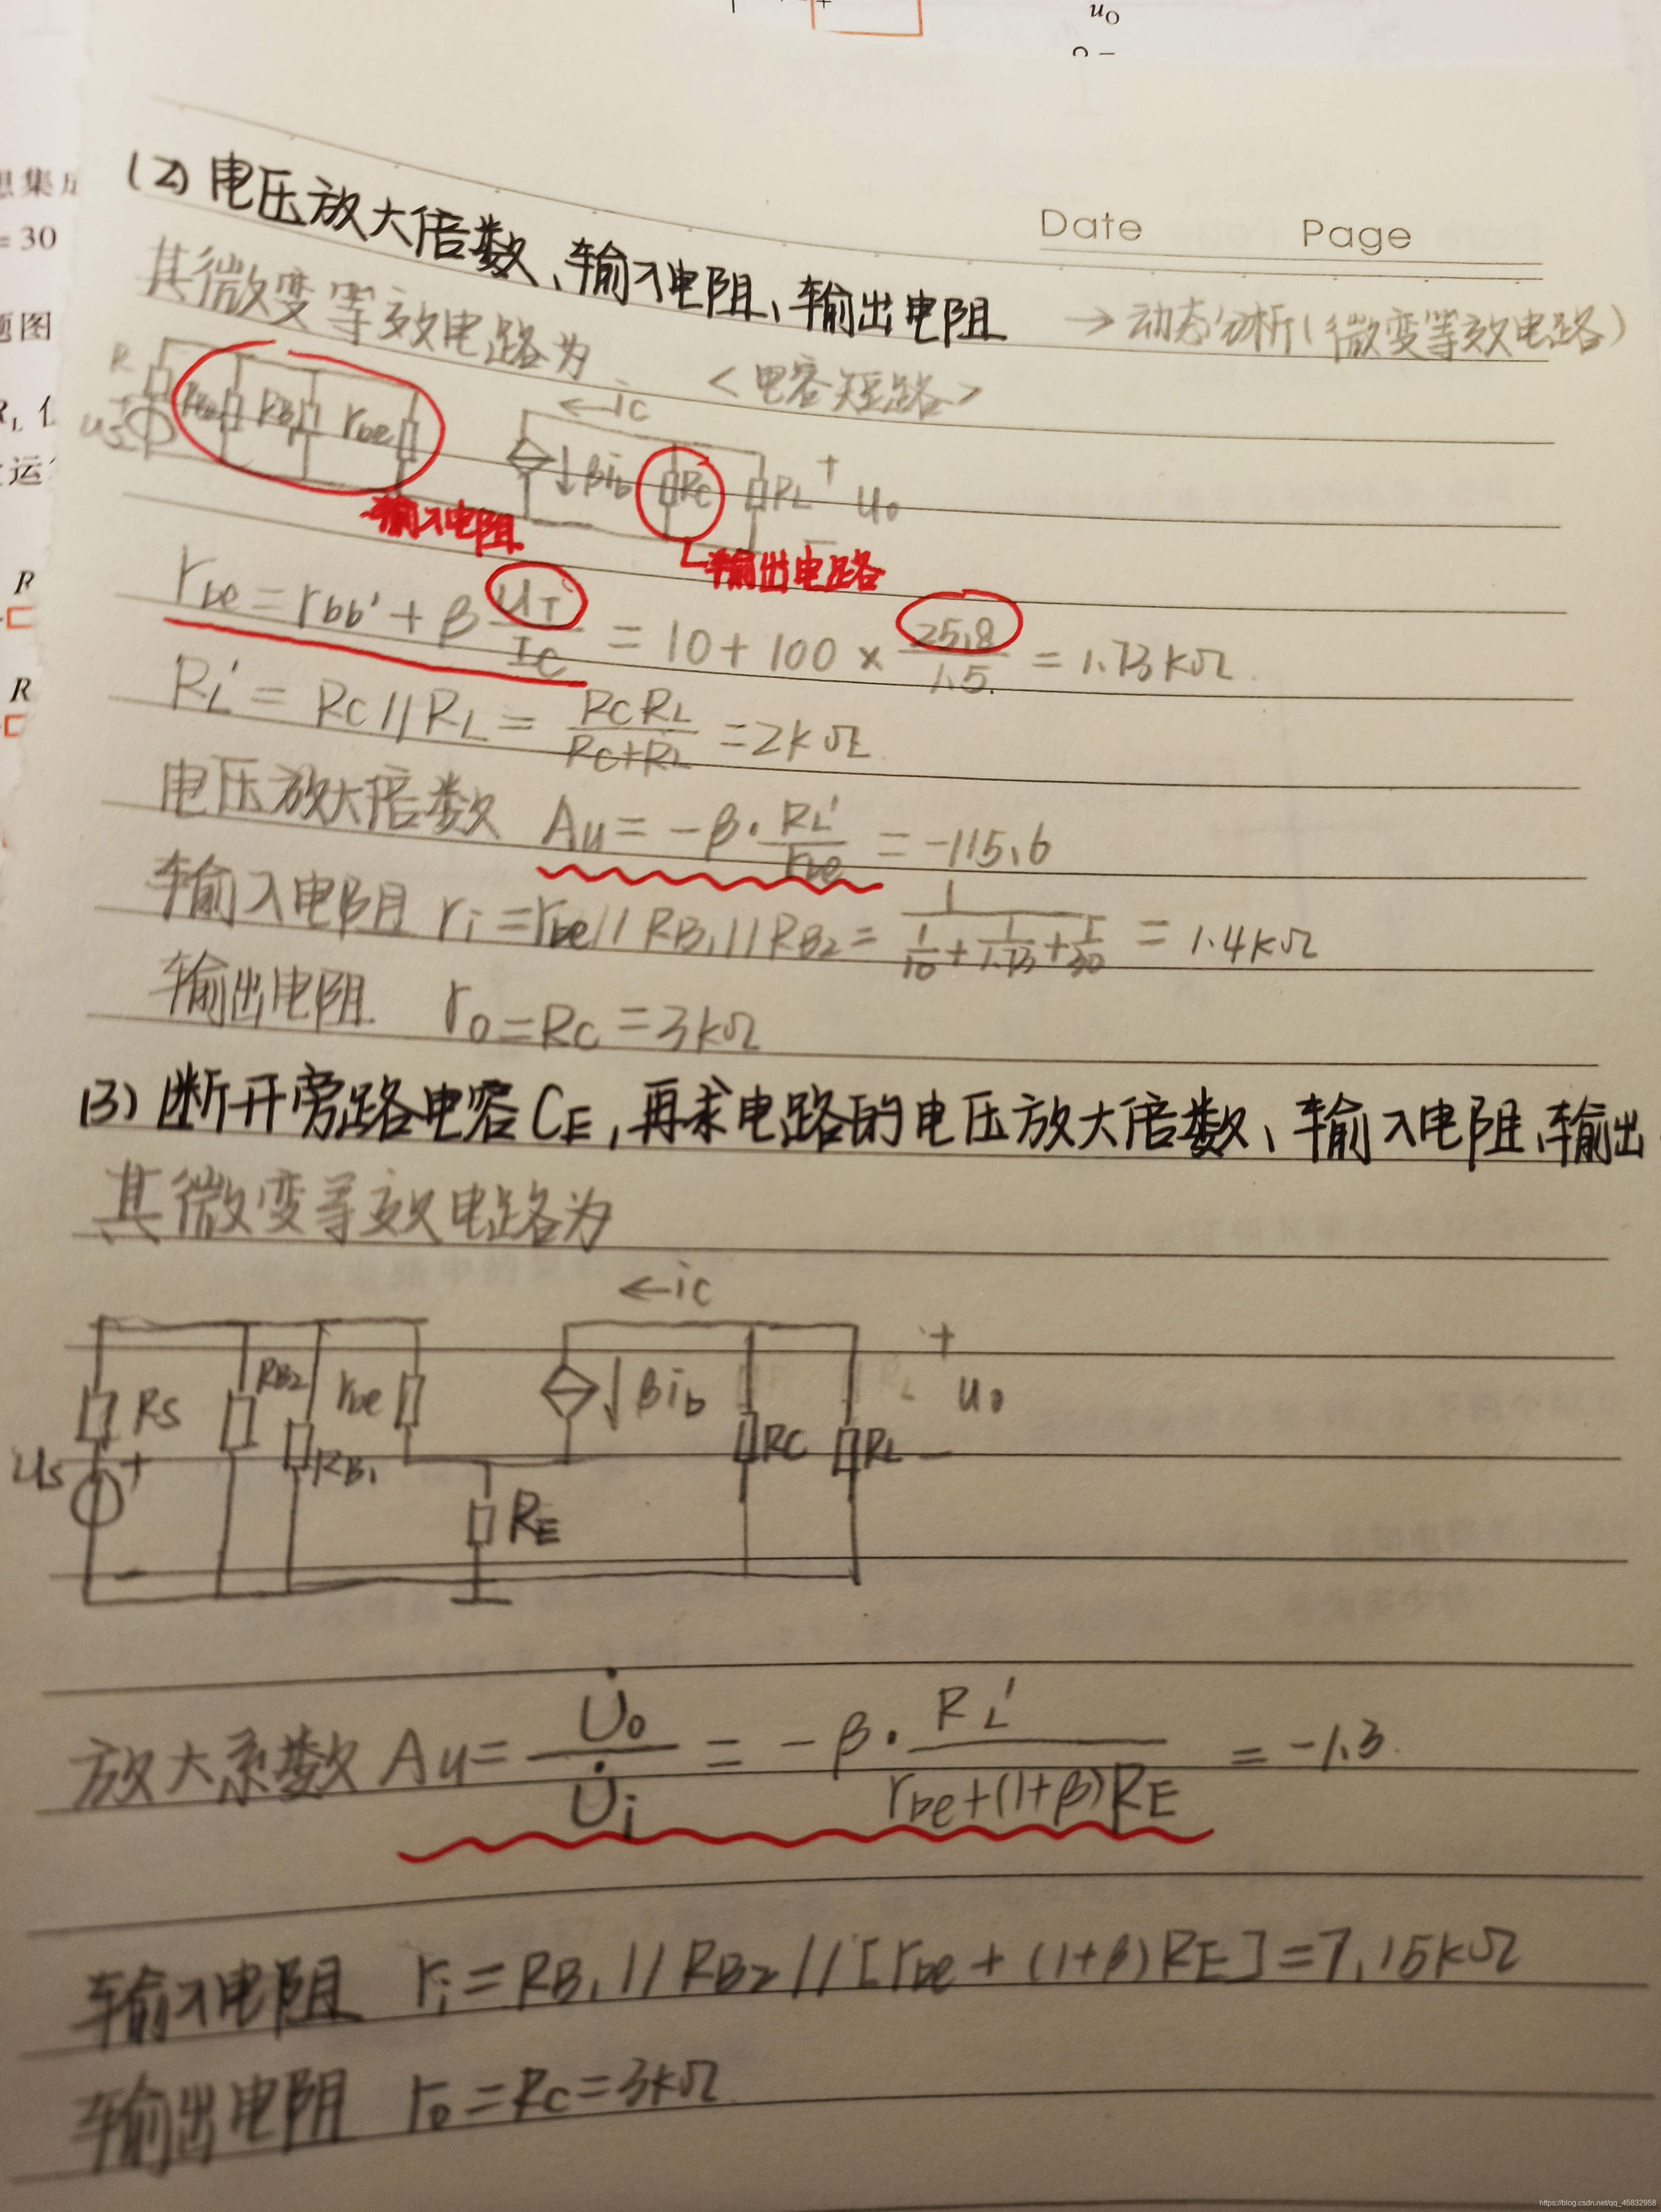 u_O
想集成
= 30
题图
R_L
运
R
R
Date Page
(2) 电压放大倍数、输入电阻、输出电阻
→ 动态分析(微变等效电路)
其微变等效电路为
<电容短路>
R
us
+
RB
rbe
←ic
βib
RC
RL
+
uo
−
输入电阻
输出电路
rbe = rbb' + β UT/IC = 10 + 100 × 25.8/1.5 = 1.73kΩ
RL' = RC // RL = RC RL/(RC+RL) = 2kΩ
电压放大倍数 Au = −β · RL'/rbe = −115.6
输入电阻 ri = rbe // RB1 // RB2 = 1/(1/10 + 1/1.73 + 1/30) = 1.4kΩ
输出电阻 ro = RC = 3kΩ
(3) 断开旁路电容CE,再求电路的电压放大倍数、输入电阻、输出
其微变等效电路为
←ic
RS
RB2
rbe
RB1
us
+
−
RE
βib
RC
RL
+
uo
−
放大系数 Au = U̇o/U̇i = −β · RL'/(rbe+(1+β)RE) = −1.3
输入电阻 ri = RB1 // RB2 // [rbe + (1+β)RE] = 7.15kΩ
输出电阻 ro = RC = 3kΩ
https://blog.csdn.net/qq_45832958